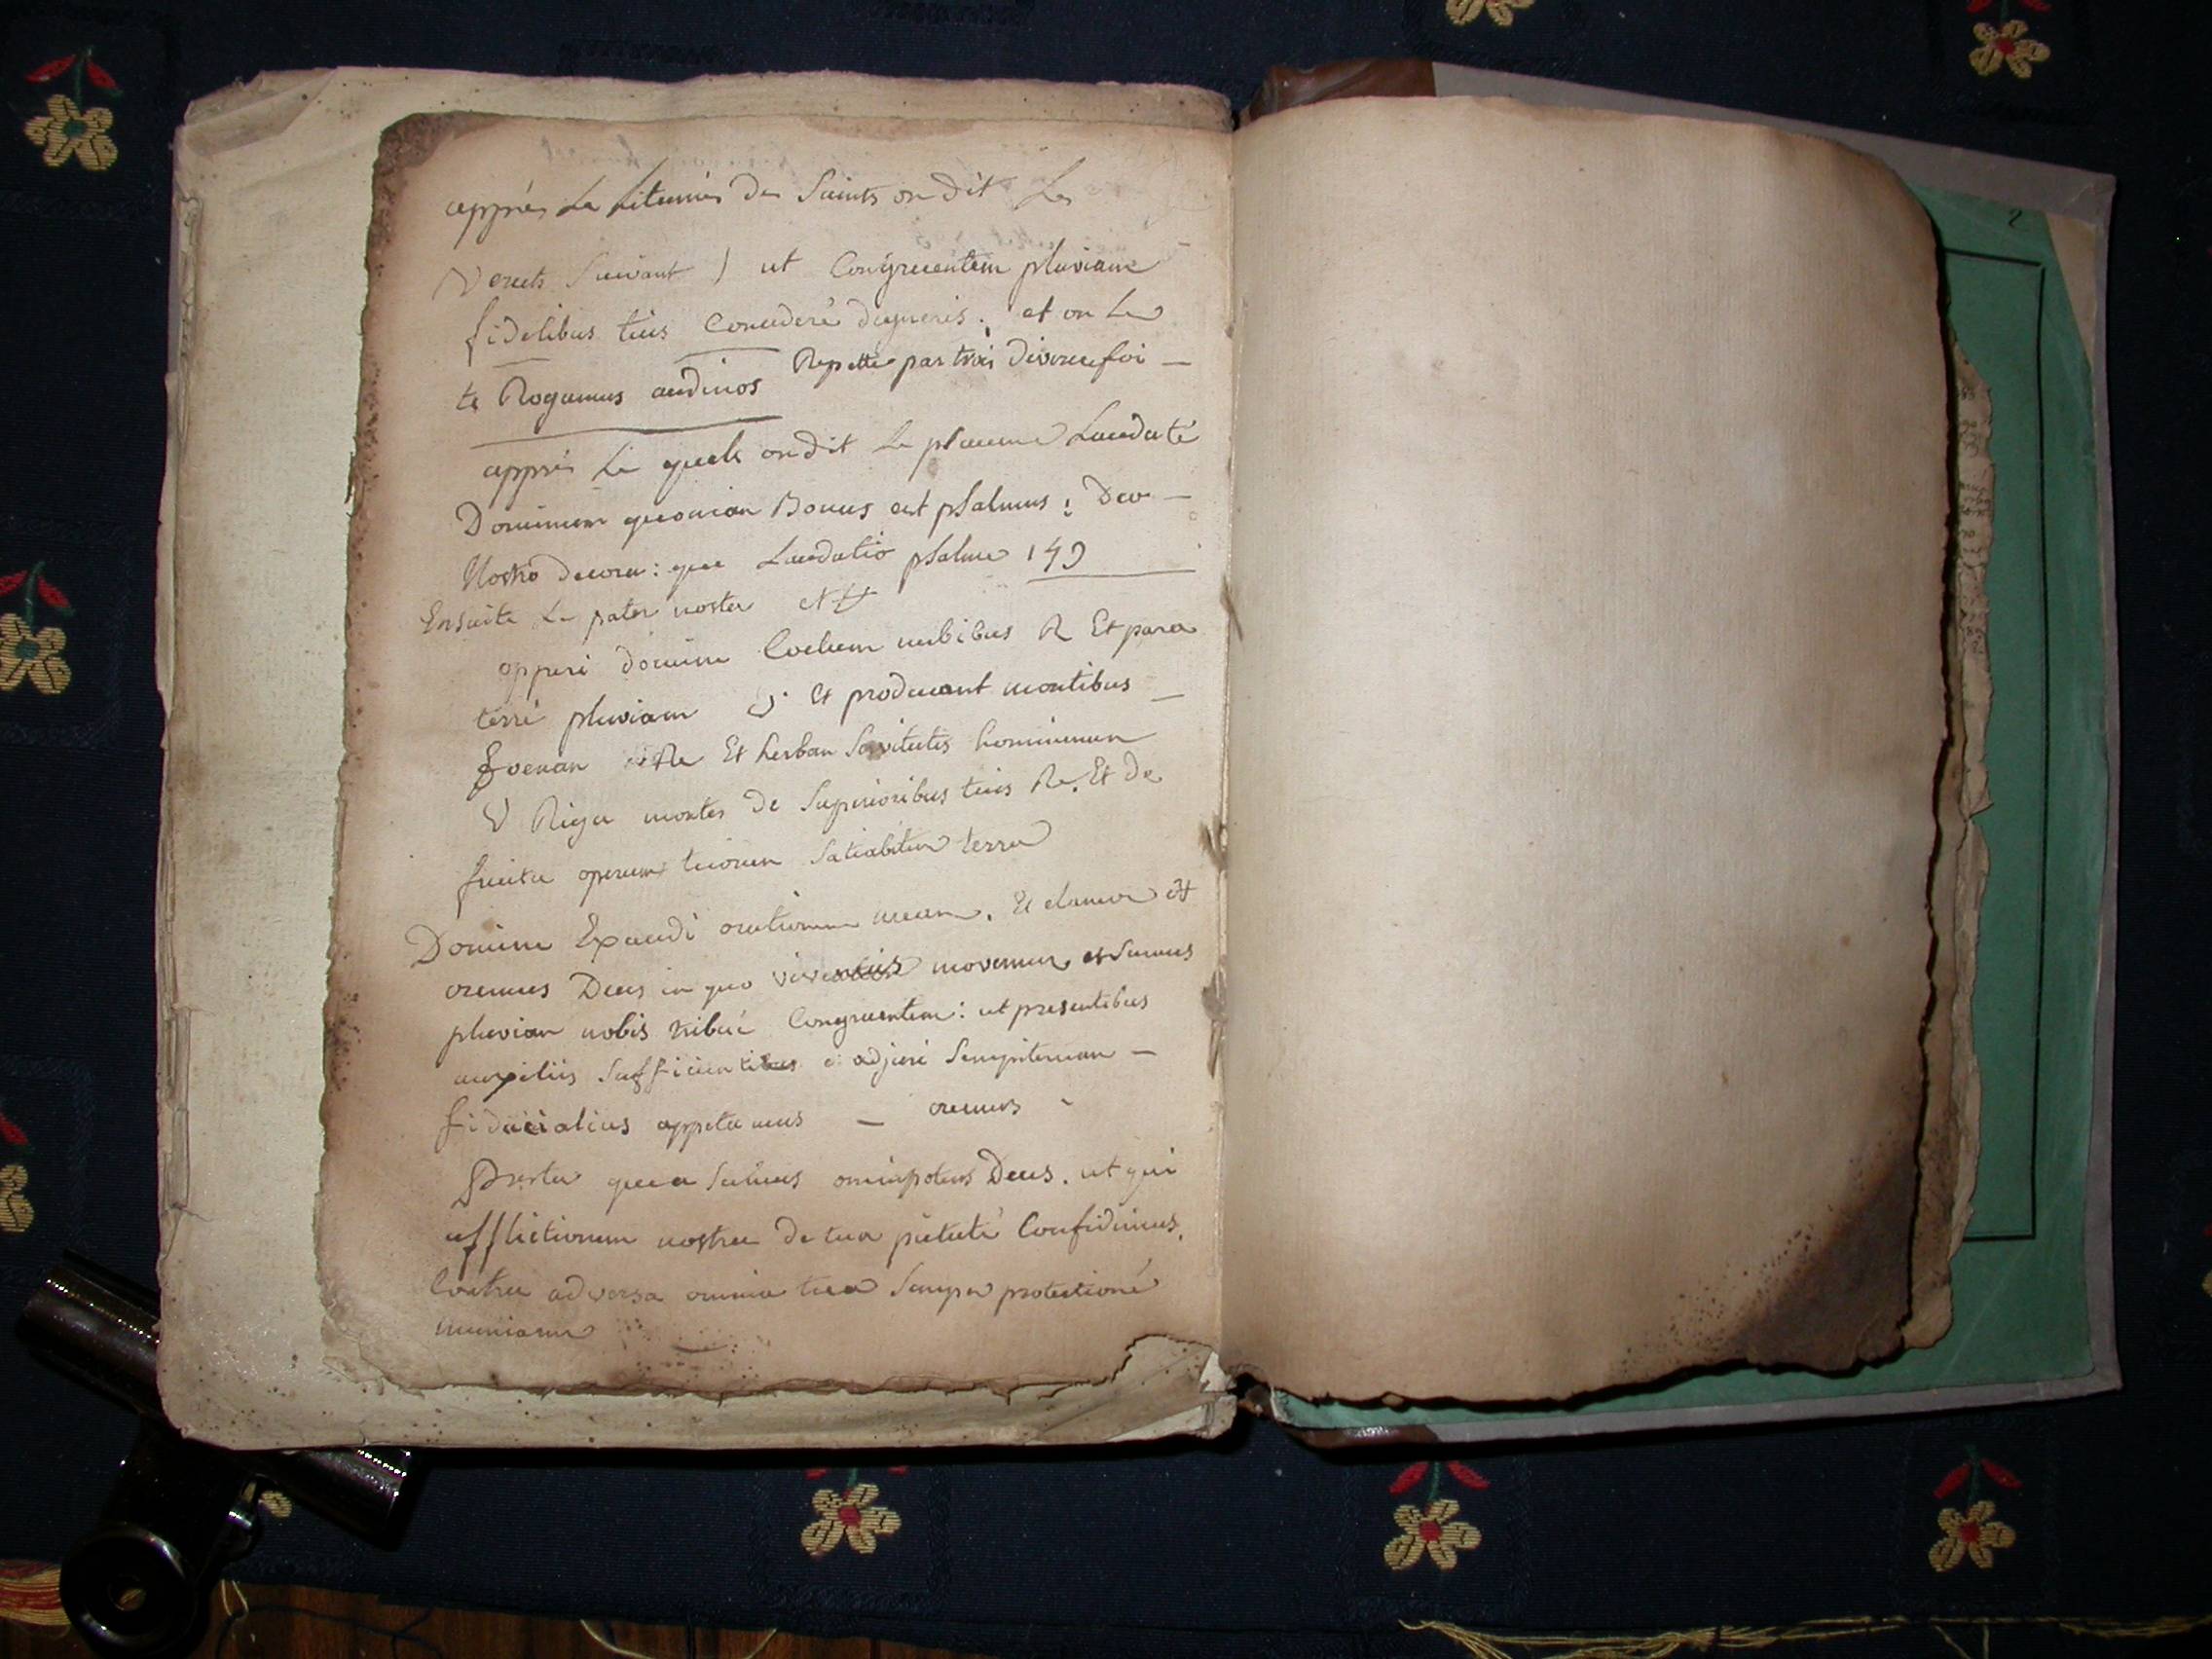 apprés Le Litanies Des Saints on Dit Les
Versets Suivant ) ut Congruentem pluviam
fidelibus tuis Concedere digneris ; et on Le
te Rogamus audinos Repette par trois diverse foi —
apprés Le quels on Dit Le plaume Laudate
Dominum quonian Bonus est psalmus : Deo —
Nostro decora : que Laudatio psalme 149
Ensuite Le pater noster
opperi domine Coelum nubibus R Et para
terre pluviam Et producant montibus —
foenan Re Et herban Servitutis hominum
V Riga montes de Superioribus tuis Re. Et De
fructu operum tuorum Satiabitur terra
Domine Exaudi orationem meam. Et clamor
oremus Deus in quo vivimus movemur et Sumus
pluvian nobis tribue Congruentem : ut presentibus
auxiliis Sufficientibus adjuti Sempiternan —
fiducialius appetamus — oremus
Presta quea Sumus omnipotens Deus. ut qui
afflictionem nostra de tua pietate Confidimus.
Contra adversa omnia tua Semper protectione
muniamur
2